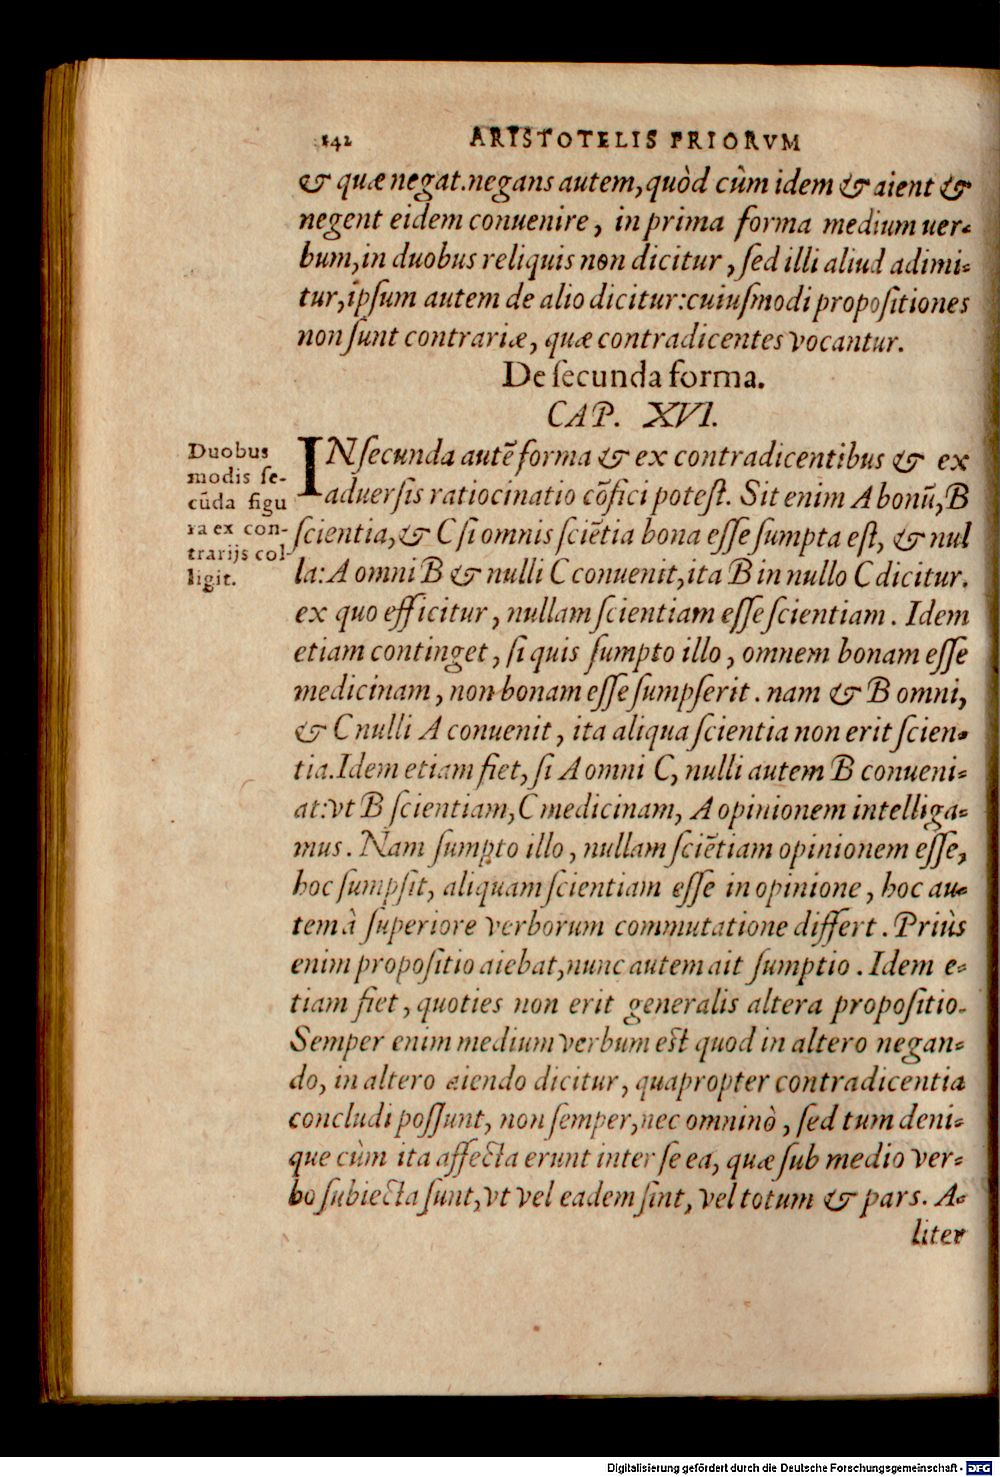 142 ARISTOTELIS PRIORVM
& quæ negat. negans autem, quòd cùm idem & aient &
negent eidem conuenire, in prima forma medium uer-
bum, in duobus reliquis non dicitur, ſed illi aliud adimi-
tur, ipſum autem de alio dicitur: cuiuſmodi propoſitiones
non ſunt contrariæ, quæ contradicentes vocantur.
De ſecunda forma.
CAP. XVI.
Duobus
modis ſe-
cũda figu
ra ex con-
trarijs col-
ligit.
IN ſecunda autẽ forma & ex contradicentibus & ex
aduerſis ratiocinatio cõfici poteſt. Sit enim A bonũ, B
ſcientia, & C ſi omnis ſciẽtia bona eſſe ſumpta eſt, & nul
la: A omni B & nulli C conuenit, ita B in nullo C dicitur.
ex quo efficitur, nullam ſcientiam eſſe ſcientiam. Idem
etiam continget, ſi quis ſumpto illo, omnem bonam eſſe
medicinam, non bonam eſſe ſumpſerit. nam & B omni,
& C nulli A conuenit, ita aliqua ſcientia non erit ſcien-
tia. Idem etiam fiet, ſi A omni C, nulli autem B conueni-
at: vt B ſcientiam, C medicinam, A opinionem intelliga-
mus. Nam ſumpto illo, nullam ſciẽtiam opinionem eſſe,
hoc ſumpſit, aliquam ſcientiam eſſe in opinione, hoc au-
tem à ſuperiore verborum commutatione differt. Priùs
enim propoſitio aiebat, nunc autem ait ſumptio. Idem e-
tiam fiet, quoties non erit generalis altera propoſitio.
Semper enim medium verbum est quod in altero negan-
do, in altero aiendo dicitur, quapropter contradicentia
concludi poſſunt, non ſemper, nec omninò, ſed tum deni-
que cùm ita affecta erunt inter ſe ea, quæ ſub medio ver-
bo ſubiecta ſunt, vt vel eadem ſint, vel totum & pars. A-
liter
Digitalisierung gefördert durch die Deutsche Forschungsgemeinschaft - DFG